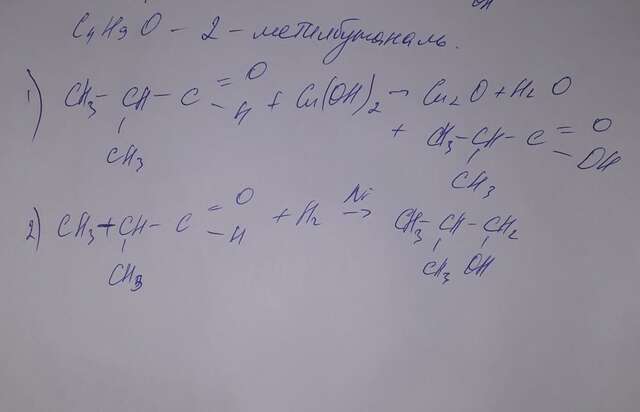 OH
C4H9O - 2 - метилбутаналь.
1) CH3 - CH - C = O - H + Cu(OH)2 → Cu2O + H2O
CH3
+ CH3 - CH - C = O - OH
CH3
2) CH3 + CH - C = O - H + H2 Ni → CH3 - CH - CH2
CH3 CH3 OH